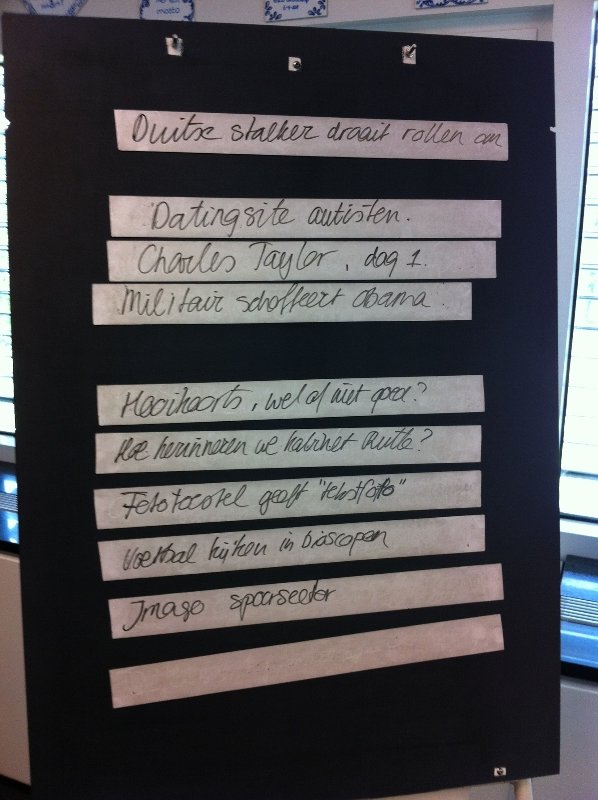 Duitse stalker draait rollen om
Datingsite autisten.
Charles Taylor, dag 1.
Militair schoffeert Obama.
Hooikoorts, wel of niet goed?
Hoe herinneren we kabinet Rutte?
geeft "tekstfoto"
Voetbal kijken in bioscopen
Imago spoorsector